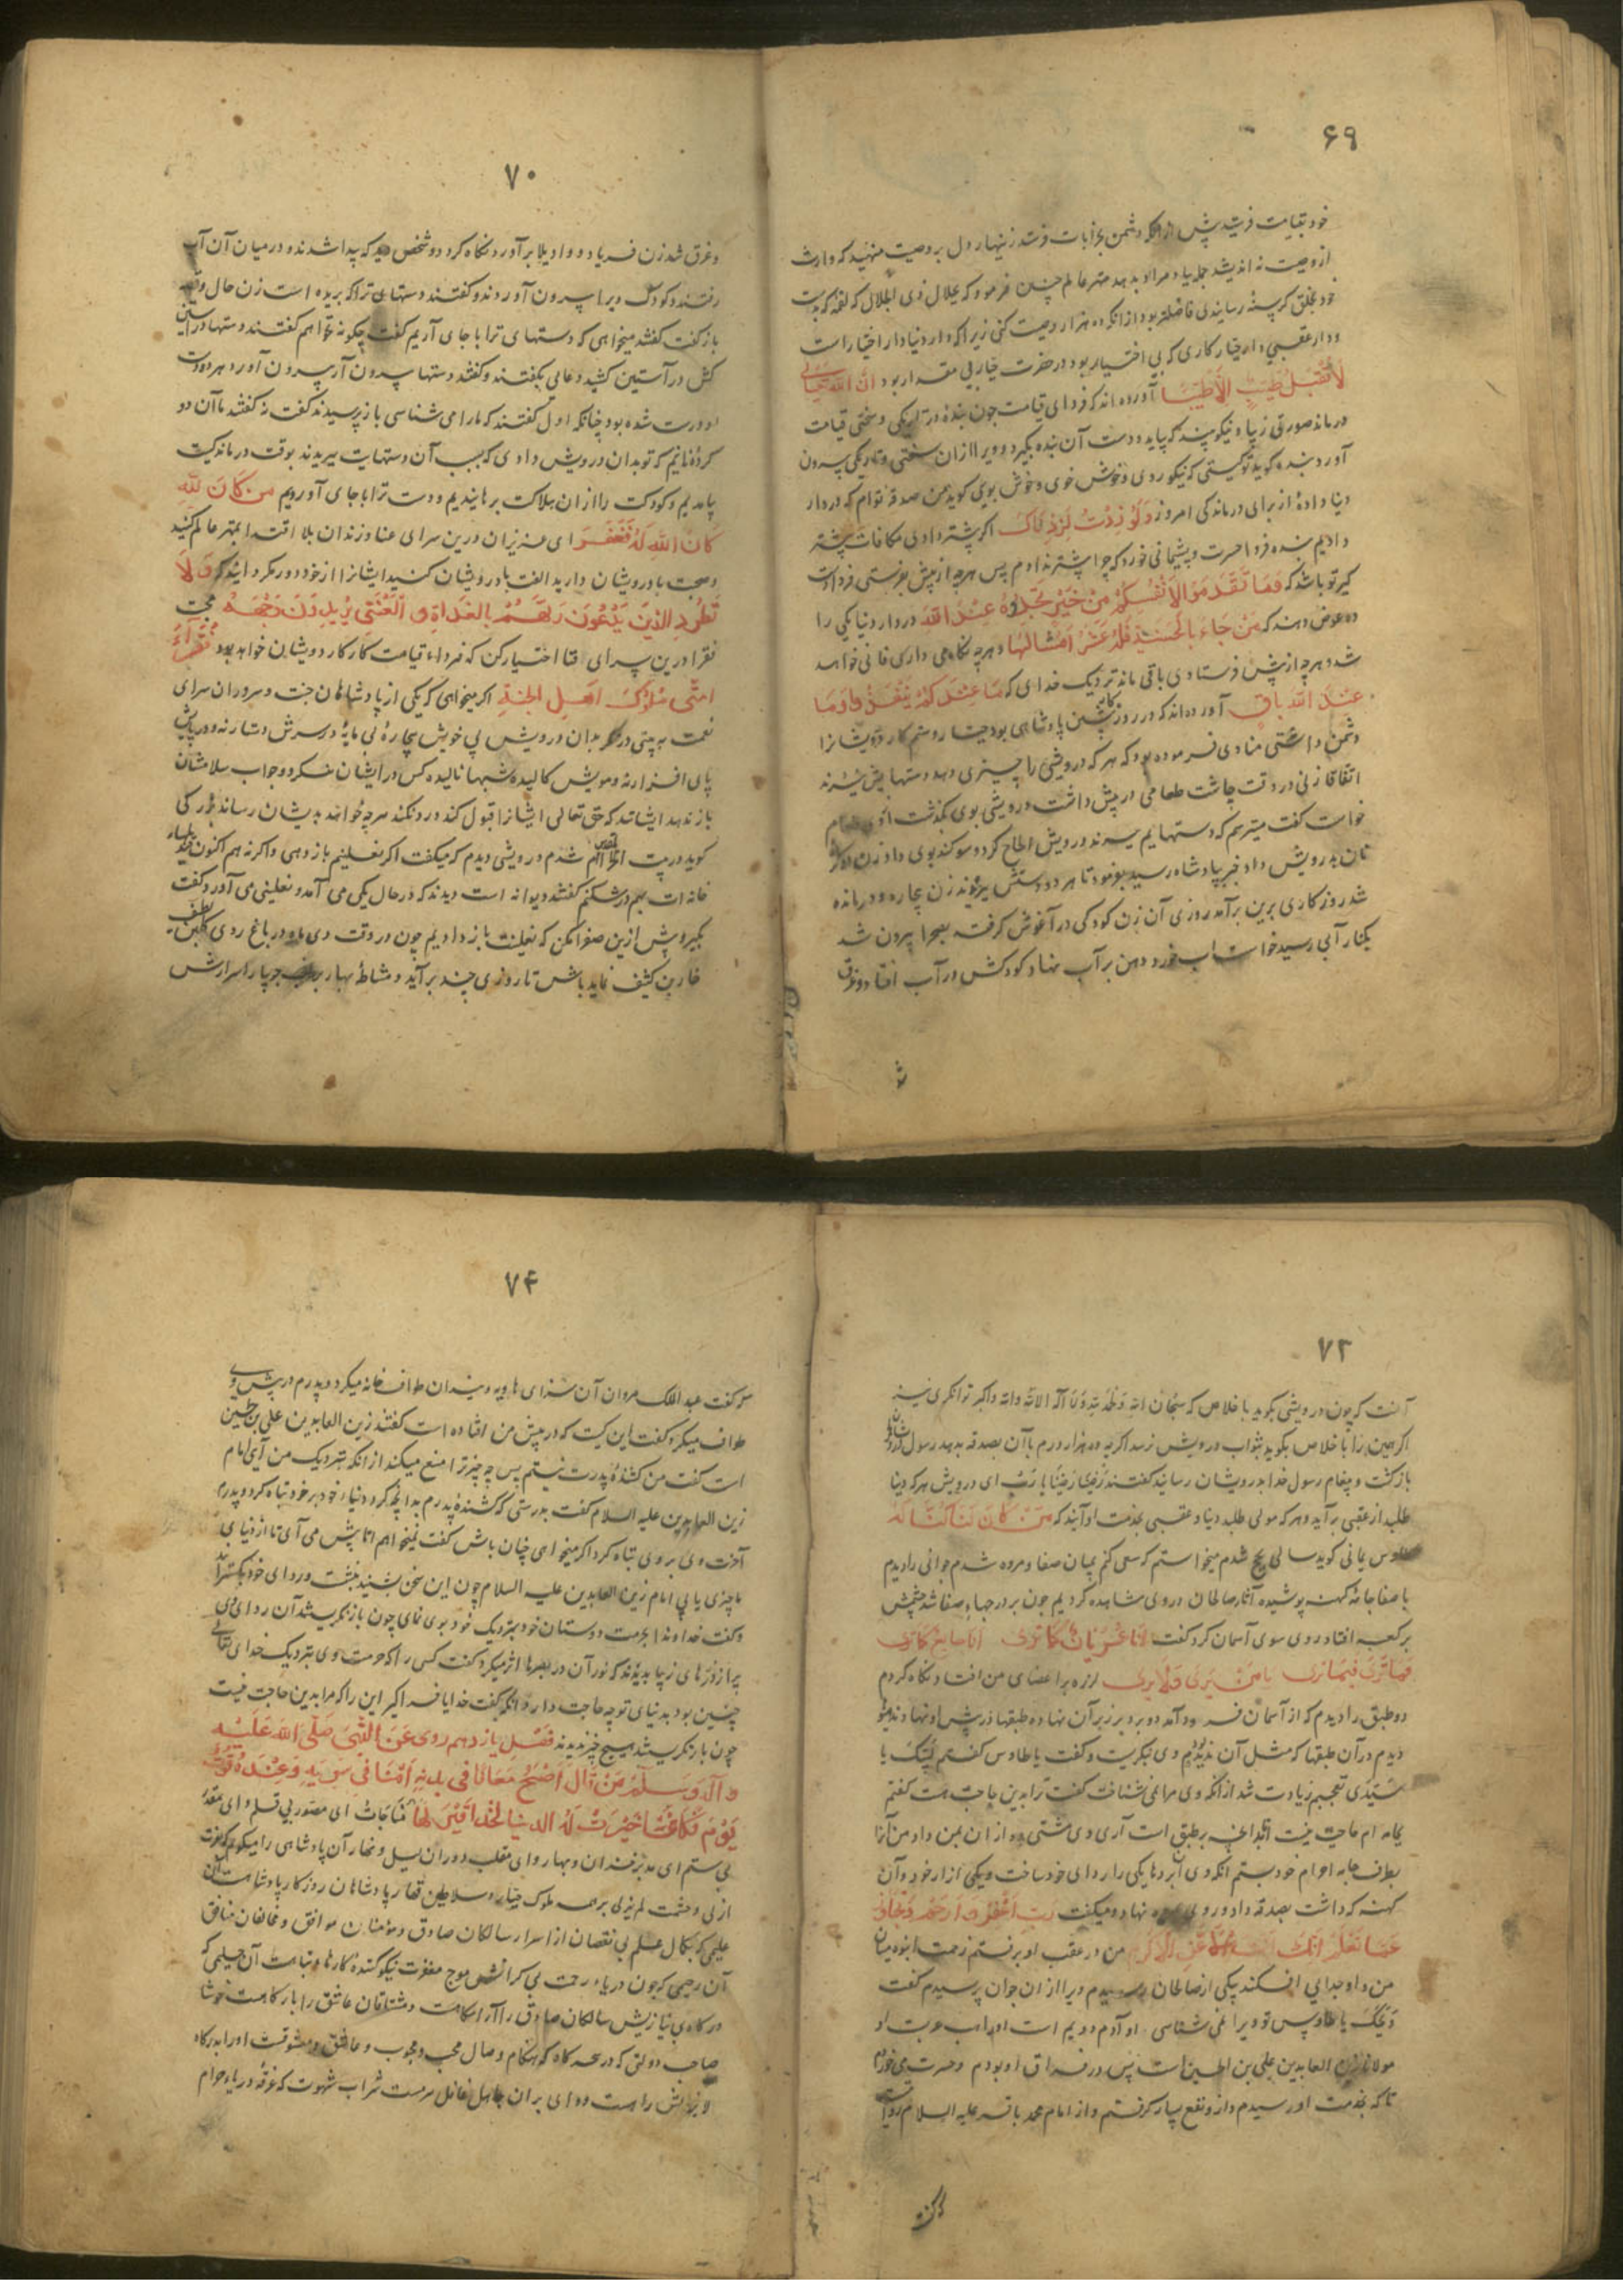 ۶۹
خود بقیامت فرستد پیش از آنکه دشمن بخرابات فرستد زینهار دل بر وصیت منهید که وارث
از وصیت نه اندیشد جمله بیاد مراد بدهد مهتر عالم چنین فرمود که بجلال ذی الجلال که لقمهٔ که بدست
خود بخلق گرسنهٔ رسانید فاضلتر بود از آنکه ده هزار وصیت کنی زیرا که دار دنیا دار اختیار است
و دار عقبی دار جبار کاری که بی اختیار بود در حضرت جبار بی مقدار بود ان الله تعالی
لا تقبل طیب الا طیبا آورده اند که فردای قیامت چون بنده در تاریکی و سختی قیامت
درماند صورتی زیبا و نیکو بیند که بیاید و دست آن بنده بگیرد و ویرا از آن سختی و تاریکی بیرون
آورد بنده گوید تو کیستی که نیکو روی و خوش خوی و خوش بوی گوید من صدقهٔ توام که در دار
دنیا دادهٔ از برای درماندگی امروز و لو زدت لزدناک اگر بیشتر دادی مکافات بیشتر
دادیم بنده فردا حسرت و پشیمانی خورد که چرا بیشتر ندادم پس هر چه از پیش بفرستی فردا دست
گیر تو باشد که و ما تقدموا لانفسکم من خیر تجدوه عند الله در دار دنیا یکی را
ده عوض دهند که من جاء بالحسنة فله عشر امثالها و هر چه نگاه می داری فانی خواهد
شد و هر چه از پیش فرستادی باقی ماند نزدیک خدای که ما عندکم ینفد و ما
عند الله باق آورده اند که در روزگار پیشین پادشاهی بود جبار و ستمکار درویشانرا
دشمن داشتی منادی فرموده بود که هر که درویشی را چیزی دهد دستهایش ببرند
اتفاقا زنی در وقت چاشت طعامی در پیش داشت درویشی بوی بگذشت
خواست گفت میترسم که دستهایم ببرند درویش الحاح کرد و سوگند بوی داد زن
نان بدرویش داد خبر بپادشاه رسید بفرمود تا هر دو دستش ببریدند زن بیچاره و درمانده
شد روزگاری برین برآمد روزی آن زن کودکی در آغوش گرفته بصحرا بیرون شد
بکنار آبی رسید خواست آب خورد دهن بر آب نهاد کودکش در آب افتاد و غرق
۷۰
و غرق شد زن فریاد و واویلا برآورد نگاه کرد دو شخص دید که پیدا شدند و در میان آن آب
رفتند و کودک ویرا بیرون آوردند و گفتند دستهای تراکه بریده است زن حال و قصه
باز گفت گفتند میخواهی که دستهای ترا با جای آریم گفت چگونه نخواهم گفتند دستها در آستین
کش در آستین کشید دعائی بگفتند و گفتند دستها بیرون آر بیرون آورد هر دو دست
او درست شده بود چنانکه اول گفتند که ما را می شناسی باز پرسیدند گفت نه گفتند ما آن دو
گردهٔ نانیم که تو بدان درویش دادی که بسبب آن دستهایت ببریدند بوقت درماندگیت
بیامدیم و کودکت را از آن هلاکت برهانیدیم و دست ترا با جای آوردیم من کان لله
کان الله له ای عزیزان درین سرای عنا و زندان بلا اقتدا بمهتر عالم کنید
و صحبت با درویشان دارید الفت با درویشان کنید ایشانرا از خود دور مگردانید که و لا
تطرد الذین یدعون ربهم بالغداة و العشی یریدون وجهه محبت
فقرا درین سرای فنا اختیار کن که فرداء قیامت کار کار درویشان خواهد بود فقراء
امتی ملوک اهل الجنة اگر میخواهی که یکی از پادشاهان جنت و سروران سرای
نعمت به بینی در نگر بدان درویش بی خویش بیچارهٔ بی مایهٔ در سرش دستار نه و در پایش
پای افزار نه و مویش کالیده شبها نالیده کس در ایشان ننگرد و جواب سلامشان
باز ندهد ایشانند که حق تعالی ایشانرا قبول کند و رد نکند هر چه خواهند بدیشان رساند بزرگی
گوید در بیت الحرام شدم درویشی دیدم که میگفت اگر نعلینم باز دهی و اگر نه هم اکنون
خانه ات بهم درشکنم گفتند دیوانه است دیدند که در حال یکی می آمد و نعلینی می آورد گفت
بگیر و پیش ازین صفرا مکن که نعلینت باز دادیم چون در وقت دی ماه در باغ روی
خار بن کثیف نماید باش تا روزی چند برآید و مشاطهٔ بهار بر لب جویبار اسرارش
۷۳
آنست که چون درویشی بگوید باخلاص که سبحان الله و الحمد لله و لا اله الا الله و الله اکبر توانگری نیز
اگر همین را باخلاص بگوید بثواب درویش نرسد اگر چه ده هزار درم با آن بصدقه بدهد رسول
بازگشت و پیغام رسول خدا بدرویشان رسانید گفتند رضینا رضینا یا رب ای درویش هر که دنیا
طلبد از عقبی برآید و هر که مولی طلبد دنیا و عقبی بخدمت او آیند که من کان لنا کنا له
طاوس یمانی گوید سالی بحج شدم میخواستم که سعی کنم میان صفا و مروه شدم جوانی را دیدم
با صفا جامهٔ کهنه پوشیده آثار صالحان در وی مشاهده کردیم چون بر درجهاء صفا شد چشمش
بر کعبه افتاد روی سوی آسمان کرد گفت انا عریان کما تری انا جایع کما تری
فما تری فیما تری یا من یری و لا یری لرزه بر اعضای من افتاد نگاه کردم
دو طبق را دیدم که از آسمان فرود آمد دو برد بر زبر آن نهاده طبقها در پیش او نهادند میوهٔ
دیدم در آن طبقها که مثل آن ندیده بودم وی بنگریست و گفت یا طاوس گفتم لبیک یا
سیدی تعجبم زیادت شد از آنکه وی مرا می شناخت گفت ترا بدین حاجت هست گفتم
بجامه ام حاجت نیست اما بدانچه بر طبق است آری وی مشتی از آن بمن داد من آنرا
بطرف جامه احرام خود بستم آنگه وی آن بردها یکی را ردای خود ساخت و یکی ازار خود و آن
کهنه که داشت بصدقه داد و روی نهاد و میگفت رب اغفر و ارحم و تجاوز
عما تعلم انک انت الاعز الاکرم من در عقب او برفتم زحمت انبوه میان
من و او جدایی افکند یکی از صالحان رسیدم ویرا از آن جوان پرسیدم گفت
ویحک یا طاوس تو ویرا نمی شناسی او آدم دویم است او راهب عرب است او
مولانا زین العابدین علی بن الحسین است پس در فراق او بودم و حسرت می خوردم
تا که بخدمت او رسیدم و از و نفع بسیار گرفتم و از امام محمد باقر علیه السلام روایت
۷۴
که گفت عبد الملک مروان آن سزای هاویه و نیران طواف خانه میکرد و پدرم در پیش وی
طواف میکرد گفت این کیست که در پیش من افتاده است گفتند زین العابدین علی بن حسین
است گفت من کشندهٔ پدرت نیستم پس چه چیز ترا منع میکند از آنکه بنزدیک من آیی امام
زین العابدین علیه السلام گفت بدرستی که کشندهٔ پدرم بدانچه کرد دنیاء خود بر خود تباه کرد و پدرم
آخرت وی بر وی تباه کرد اگر میخواهی چنان باش گفت نمیخواهم اما پیش من آی تا از دنیای
ما چیزی یابی امام زین العابدین علیه السلام چون این سخن بشنید بنشست و ردای خود بگسترانید
و گفت خداوندا بحرمت دوستان خود بنزدیک خود بوی نمای چون باز نگریستند آن ردای وی
پر از درهای زیبا بدیدند که نور آن در بصرها اثر میکرد گفت کسی را که حرمت وی بنزدیک خدای تعالی
چنین بود بدنیای تو چه حاجت دارد آنگه گفت خدایا فراگیر این را که مرا بدین حاجت نیست
چون باز نگریستند هیچ چیز ندیدند فصل یازدهم روی عن النبی صلی الله علیه
و آله و سلم من قال اصبح معافا فی بدنه آمنا فی سربه و عنده قوت
یوم فکانما خیرت له الدنیا بحذافیرها مناجات ای مصور بی قلم و ای مقدر
بی ستم ای مدبر فندان و بهار و ای مقلب دوران لیل و نهار آن پادشاهی را میگویم که عزت
ازلی و حشمت لم یزلی برهمه ملوک جبار و سلاطین قهار پادشاهان روزگار پادشاهست آن
علیمی که بکمال علم بی نقصان از اسرار سالکان صادق و مؤمنان موافق و مخالفان منافق
آن رحیمی که چون دریاء رحمت بی کرانش موج مغفرت نیکو کنندهٔ کارها و نیات است آن حلیمی که
درگاه بی نیازیش سالکان صادق را آرامگاهست و مشتاقان عاشق را بارگاهست خوشا
صاحب دولتی که در سحرگاه که هنگام وصال محب و محبوب و عاشق و معشوقست او را بدرگاه
لایزالش راهست وای بر آن جاهل غافل سرمست شراب شهوت که غرقهٔ دریاء حرام